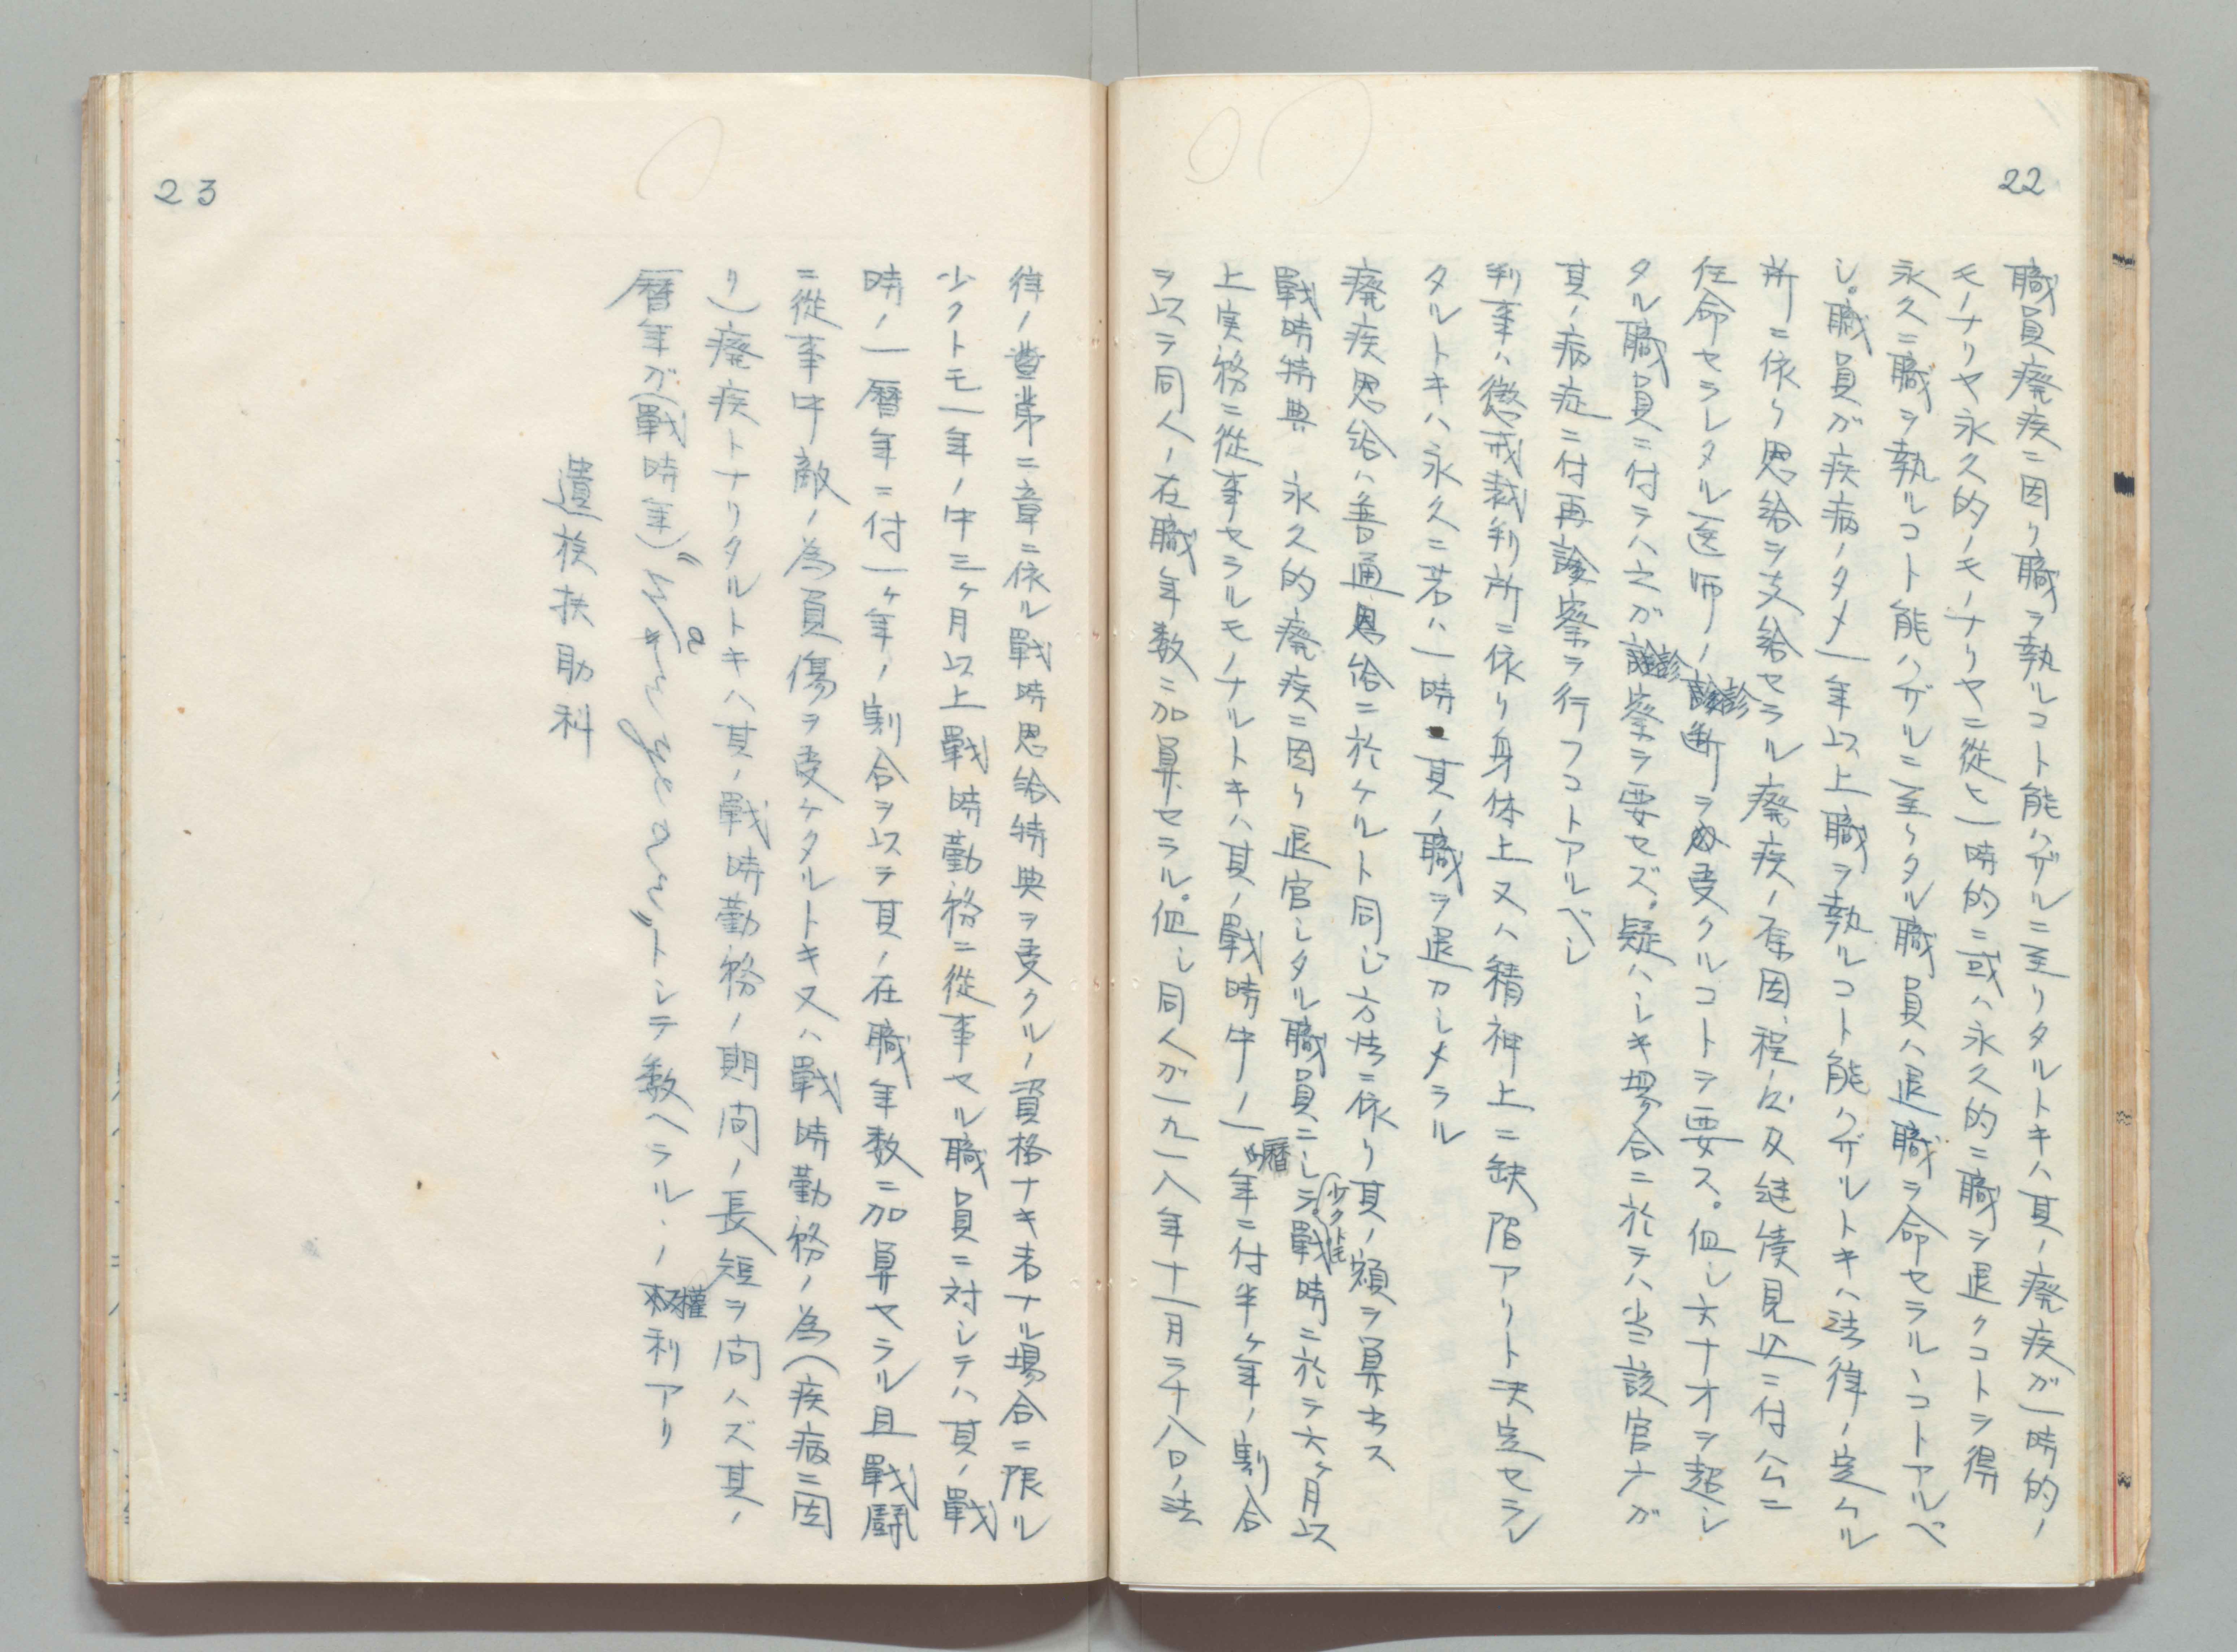 22
職員癈疾ニ因リ職ヲ執ルコト能ハザルニ至リタルトキハ其ノ癈疾ガ一時的ノ
モノナリヤ永久的ノモノナリヤニ從ヒ一時的ニ或ハ永久的ニ職ヲ退クコトヲ得
永久ニ職ヲ執ルコト能ハザルニ至リタル職員ハ退職ヲ命セラルヽコトアルベ
シ。職員ガ疾病ノタメ一年以上職ヲ執ルコト能ハザルトキハ法律ノ定ムル
所ニ依リ恩給ヲ支給セラル癈疾ノ原因、程度及継続見込ニ付公ニ
任命セラレタル医師ノ診断ヲ受クルコトヲ要ス。但シ六十才ヲ超シ
タル職員ニ付テハ之ガ診察ヲ要セズ。疑ハシキ場合ニ於テハ当該官庁ガ
其ノ病症ニ付再診察ヲ行フコトアルベシ
判事ハ懲戒裁判所ニ依リ身体上又ハ精神上ニ缺陷アリト決定セラレ
タルトキハ永久ニ若ハ一時ニ其ノ職ヲ退カシメラル
癈疾恩給ハ普通恩給ニ於ケルト同じ方法ニ依リ其ノ額ヲ算出ス
戰時特典 永久的癈疾ニ因リ退官シタル職員ニシテ少クトモ戰時ニ於テ六ヶ月以
上実務ニ從事セラルモノナルトキハ其ノ戰時中ノ一暦年ニ付半ヶ年ノ割合
ヲ以テ同人ノ在職年数ニ加算セラル。但シ同人ガ一九一八年十一月二十八日ノ法
23
律ノ第二章ニ依ル戰時恩給特典ヲ受クルノ資格ナキ者ナル場合ニ限ル
少クトモ一年ノ中三ヶ月以上戰時勤務ニ從事セル職員ニ対シテハ其ノ戰
時ノ一暦年ニ付一ヶ年ノ割合ヲ以テ其ノ在職年数ニ加算セラル且戰鬪
ニ從事中敵ノ為負傷ヲ受ケタルトキ又ハ戰時勤務ノ為(疾病ニ因
リ)癈疾トナリタルトキハ其ノ戰時勤務ノ期間ノ長短ヲ問ハズ其ノ
暦年ガ(戰時年)トシテ数ヘラルヽノ權利アリ
遺族扶助料